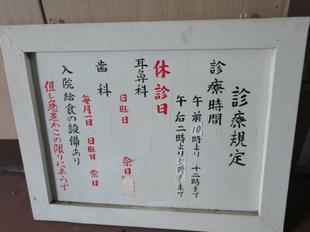 診療規定
診療時間
午前10時より十二時まで
午后二時より5時まで
休診日
耳鼻科
日旺日 祭日
歯科
毎月一日 日旺日 祭日
入院給食の設備あり
但し急患わこの限りにあらず